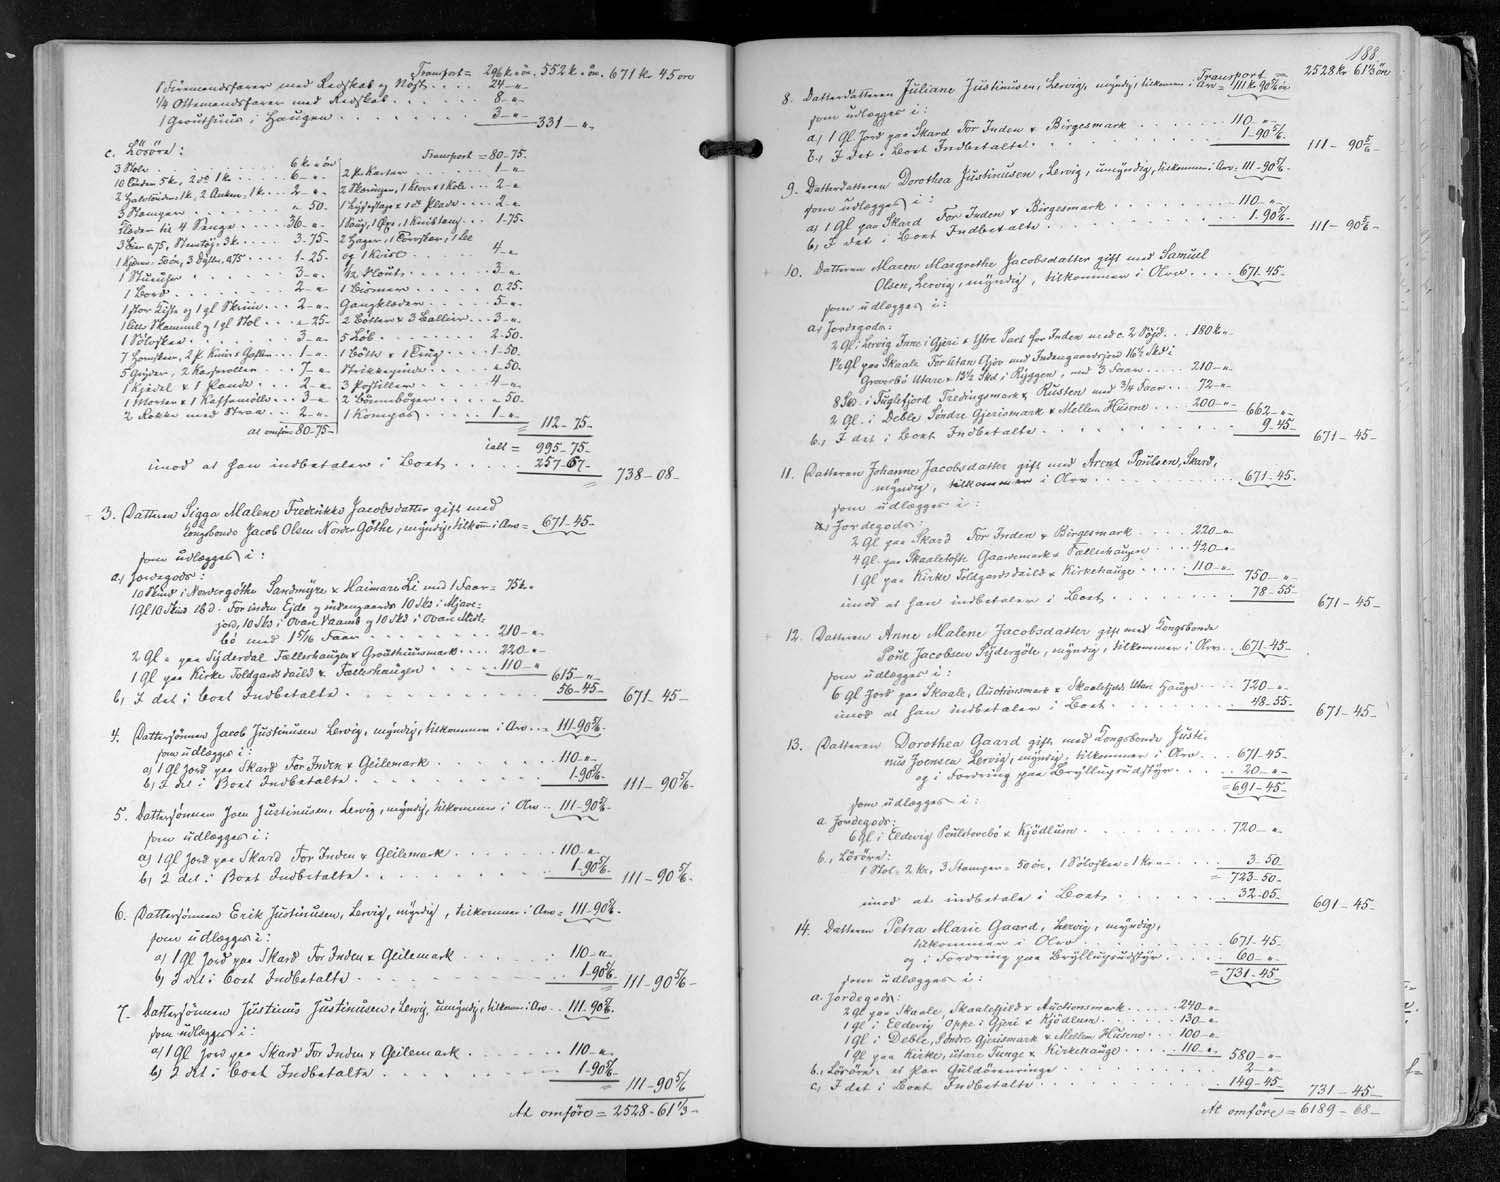 Transport = 296 k " ö. 552 k " ö. 671 kr 45 öre
1 Firemandsfarer med Redskab og Nöst . . . . 24 - "
1/4 Ottemandsfarer med Redskab . . . . . 8 - "
1 Grouthuus i Haugen . . . . . . . 3 - " 331 - "
c. Lösöre:
3 Stole . . . . . . . 6 k " ör
10 Enden 5 k, 2 do 1 k . . . 6 - "
2 Halvtönder 1 k, 2 Anker 1 k . . 2 - "
3 Stamper . . . . . . . " 50.
Klæder til 4 Senge . . . . 36 - "
3 Bær 0,75, Stentöj 3 k . . . 3 - 75 -
1 50 öre, 3 0,75 . . 1 - 25 -
1 Stueuhr . . . . . . 3 - "
1 Bord . . . . . . . 2 - "
1 stor Kiste og 1 gl Skrin . . . 2 - "
1 lille Skammel og 1 gl Stol . . . " 25 -
1 Sölvskee . . . . . . 3 - "
7 Hornskeer, 2 p. Knive & Gafler . . 1 - "
5 Gryder, 2 Kasseroller . . . 7 - "
1 Kjedel & 1 Pande . . . 2 - "
1 Morter & 1 Kaffemölle . . . 3 - "
2 Rokke med Straa . . . 2 - "
at omföre 80 - 75 -
Transport = 80 - 75.
2 p. Karter . . . . . . 1 - "
2 Skeringer, 1 Klovi & 1 Kole . . 2 - "
1 Lysestage & 1 st Plade . . . 2 - "
1 Saug, 1 Öxe, 1 Knibtang . . . 1 - 75
2 Hager, 1 Torvskær, 1 Lee
og 1 Kvist . . . . . . 4 - "
1/2 Slout . . . . . . 3 - "
1 Bismer . . . . . . 0.25.
Gangklæder . . . . . 5 - "
2 Bötter & 3 Ballier . . . 3 - "
5 Löb . . . . . . . 2 - 50.
1 Bötte & 1 Trug . . . . 1 - 50.
Strikkepinde . . . . . " 50.
3 Postiller . . . . . 4 - "
2 Bönneböger . . . . . " 50.
1 Kompas . . . . . . 1 - " 112 - 75 -
ialt = 995 - 75 -
imod at han indbetaler i Boet . . . . . 257 - 67 - 738 - 08 -
3. Datteren Sigga Malene Frederikke Jacobsdatter gift med
Kongsbonde Jacob Olsen Norder Göthe, myndig, tilkom i Arv = 671 - 45 -
som udlægges i:
a) Jordegods:
10 Skind i Nordergöthe Sandmyre & Haimare Li med 1 Faar = 75 k "
1 Gl 10 Skind 16 d. For inden Ejde og indengaards 10 Sks i Mjave-
jord, 10 Sks i Ovara Vaamb og 10 Skd i Ovara Midt-
bö med 1 5/16 Faar . . . . . . 210 - "
2 Gl " paa Syderdal Fællerhaugen & Grouthuusmark . . . 220 - "
1 Gl paa Kirke Toldgards daild & Fællerhaugen . . . . 110 - " 615 - "
b, I det i Boet Indbetalte . . . . . . . . . 56 - 45 - 671 - 45 -
4. Dattersönnen Jacob Justinusen Lervig, myndig, tilkommer i Arv . . = 111 - 90 5/6 -
som udlægges i:
a) 1 Gl Jord paa Skard For Inden & Geilemark . . . . . 110 - "
b, I det i Boet Indbetalte . . . . . . . . 1 - 90 5/6 - 111 - 90 5/6 -
5. Dattersönnen Joen Justinusen, Lervig, myndig, tilkommer i Arv . . 111 - 90 5/6 -
som udlægges i:
a) 1 Gl Jord paa Skard For Inden & Geilemark . . . . . 110 - "
b, I det i Boet Indbetalte . . . . . . . . 1 - 90 5/6 - 111 - 90 5/6 -
6. Dattersönnen Erik Justinusen, Lervig, myndig, tilkommer i Arv = 111 - 90 5/6 -
som udlægges i:
a) 1 Gl Jord paa Skard For Inden & Geilemark . . . : 110 - "
b) I det i Boet Indbetalte . . . . . . . . 1 - 90 5/6 - 111 - 90 5/6 -
7. Dattersönnen Justinus Justinusen, Lervig, umyndig, tilkommer i Arv . . 111 - 90 5/6 -
som udlægges i:
a) 1 Gl Jord paa Skard For Inden & Geilemark . . . . . 110 - "
b) I det i Boet Indbetalte . . . . . . . . 1 - 90 5/6 - 111 - 90 5/6
At omföre = 2528 - 61 1/3 -
188
Transport = 2528 kr 61 1/3 öre
8. Datterdatteren Juliane Justinusen, Lervig, myndig, tilkommer i Arv = 111 kr 90 5/6 öre
som udlægges i:
a) 1 Gl. Jord paa Skard For Inden & Birgesmark . . . . . 110 - "
b, I det i Boet Indbetalte . . . . . . . . 1 - 90 5/6 - 111 - 90 5/6 -
9. Datterdatteren Dorothea Justinusen, Lervig, umyndig, tilkommer i Arv = 111 - 90 5/6 -
som udlægges i:
a) 1 Gl paa Skard For Inden & Birgesmark . . . . . 110 - "
b, I det i Boet Indbetalte . . . . . . . . 1 - 90 5/6 - 111 - 90 5/6 -
10. Datteren Maren Margrethe Jacobsdatter gift med Samuel
Olsen, Lervig, myndig, tilkommer i Arv . . . . 671 - 45 -
som udlægges i:
a) Jordegods:
2 Gl i Lervig Inne i Gjeri & Ytre Part for Inden med c. 2 Söjd . . . 180 k "
1 1/2 Gl paa Skaale For Utan Gjöv med Indengaardsjord 16 1/2 Skd i
Groverbö Utare & 13 1/2 Skd i Ryggen, med 3 Faar . . . . 210 - "
8 Skd. i Fuglefjord Tredingsmark & Rusten med 3/4 Faar . . . 72 - "
2 Gl. i Deble Söndre Gjerismark & Mellem Husene . . . 200 - " 662 - "
b, I det i Boet Indbetalte . . . . . . . . . 9 - 45 - 671 - 45 -
11. Datteren Johanne Jacobsdatter gift med Arent Poulsen, Skard,
myndig, tilkommer i Arv . . . . . . . . 671 - 45 -
som udlægges i:
a) Jordegods:
2 Gl paa Skard For Inden & Birgesmark . . . . 220 - "
4 Gl. paa Skaaletofte Gaardemark & Fællerhaugen . . . 420 - "
1 Gl paa Kirke Toldgardsdaild & Kirkehauge . . . . 110 - " 750 - "
imod at han indbetaler i Boet . . . . . . . 78 - 55 - 671 - 45 -
12. Datteren Anne Malene Jacobsdatter gift med Kongsbonde
Poul Jacobsen Sydergöte, myndig, tilkommer i Arv . . 671 - 45 -
som udlægges i:
6 Gl Jord paa Skaale, Auctionsmark & Skaalefjeld Utan Hauge . . . 720 - "
imod at han indbetaler i Boet . . . . . . . 48 - 55 - 671 - 45 -
13. Datteren Dorothea Gaard gift med Kongsbonde Justi-
nus Joensen Lervig, myndig, tilkommer i Arv . . . 671 - 45 -
og i Fordring paa Bryllupsudstyr . . . . 20 - "
= 691 - 45 -
som udlægges i:
a. Jordegods:
6 Gl i Eldevig Poulstovebö & Kjödlum . . . . . . . 720 - "
b, Lösöre:
1 Stol = 2 kr, 3 Stamper = 50 öre, 1 Sölvskee = 1 kr " . . . 3 - 50
= 723 - 50 -
imod at indbetale i Boet . . . . . . . 32 - 05 - 691 - 45 -
14. Datteren Petra Marie Gaard, Lervig, myndig,
tilkommer i Arv . . . . . . . . 671 - 45 -
og i Fordring paa Bryllupsudstyr . . . . 60 - "
= 731 - 45
som udlægges i:
a. Jordegods:
2 Gl paa Skaale, Skaalefjeld & Auctionsmark . . . . 240 - "
1 Gl i Eldevig, Oppe i Gjeri & Kjödlum . . . . 130 - "
1 Gl i Deble, Söndre Gjerismark & Mellem Husene . . . 100 - "
1 Gl paa Kirke, utare Tunge & Kirkehauge . . . 110 - " 580 - "
b, Lösöre. et Par Guldörenringe . . . . . . . 2 - "
c, I det i Boet Indbetalte . . . . . . . . . 149 - 45 - 731 - 45 -
At omföre = 6189 - 68 -